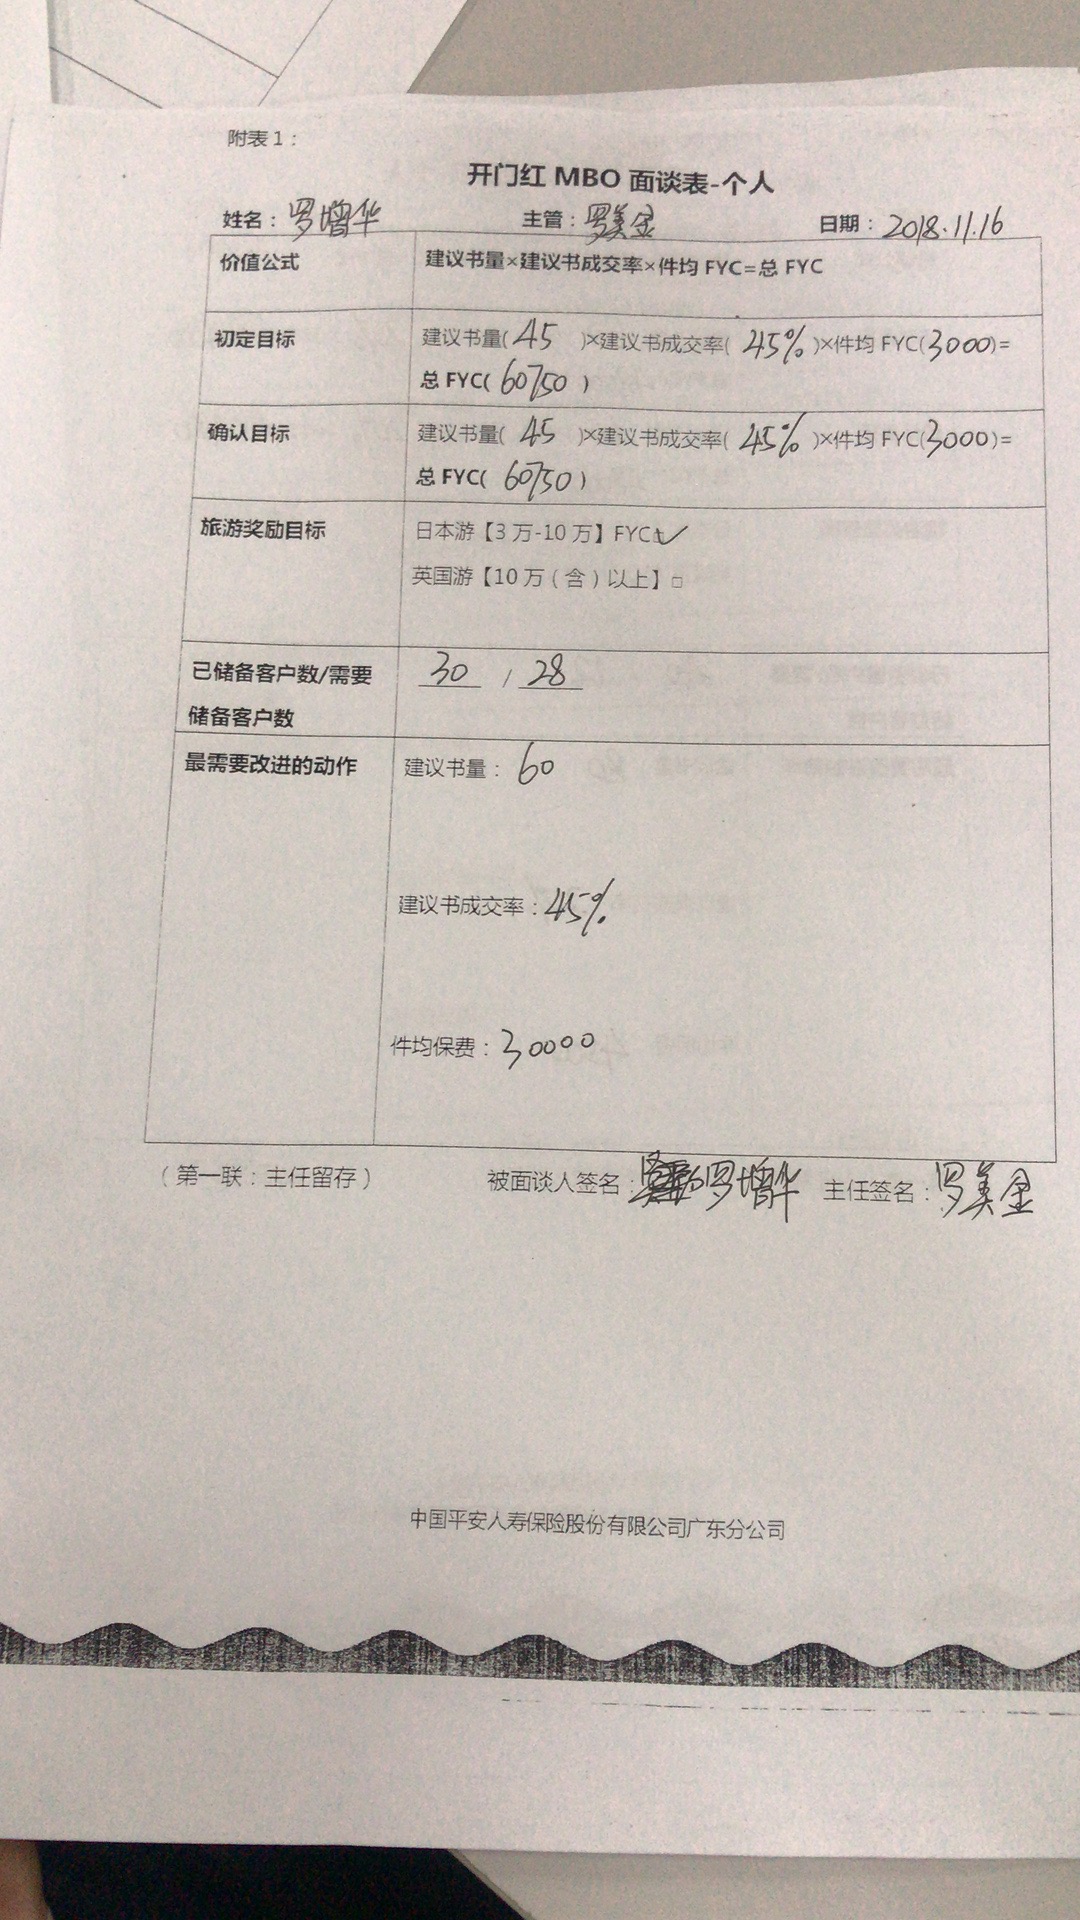 附表1：
开门红 MBO 面谈表-个人
姓名：罗增华 主管：罗美金 日期：2018.11.16
价值公式 建议书量×建议书成交率×件均 FYC=总 FYC
初定目标 建议书量(45)×建议书成交率(45%)×件均 FYC(3000)=
总 FYC(60750)
确认目标 建议书量(45)×建议书成交率(45%)×件均 FYC(3000)=
总 FYC(60750)
旅游奖励目标 日本游【3万-10万】FYC☑
英国游【10万（含）以上】□
已储备客户数/需要 30 / 28
储备客户数
最需要改进的动作 建议书量：60
建议书成交率：45%
件均保费：30000
（第一联：主任留存） 被面谈人签名：罗增华 主任签名：罗美金
中国平安人寿保险股份有限公司广东分公司